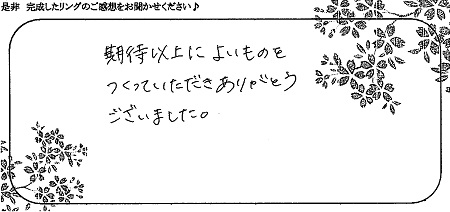 是非 完成したリングのご感想をお聞かせください♪
期待以上によいものを
つくっていただきありがとう
ございました。